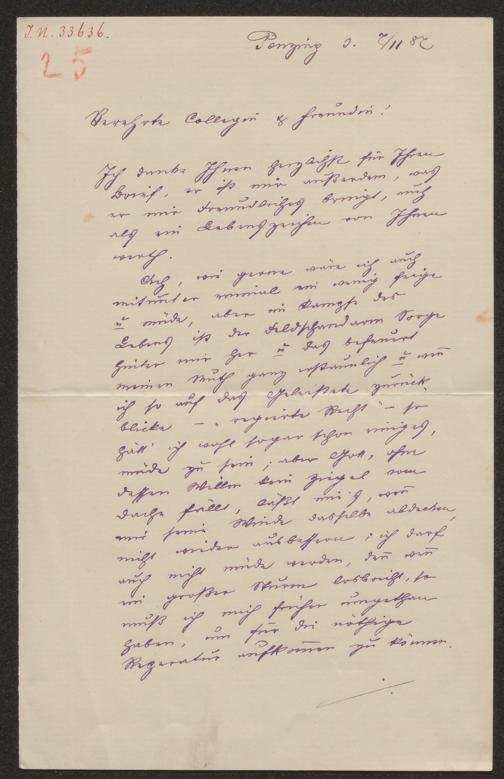 J.N. 33636.
25
Penzing d. 7/11 87
Verehrte Collegin & Freundin!
Ich danke Ihnen herzlichst für Ihren
Brief, er ist mir außerdem, was
er mir Freundliches bringt, auch
als ein Lebenszeichen von Ihnen
werth.
Ach, wie gerne wäre ich auch
mitunter einmal ein wenig feige
u müde, aber im Kampfe des
Lebens ist der Feldschandarm Sorge
hinter mir her u das befeuert
meinen Muth ganz erstaunlich u wenn
ich so auf das Geleistete zurück-
blicke – "regierte Recht" – so
hätt' ich wohl sogar schon einiges,
müde zu sein; aber Gott, ohne
dessen Willen kein Ziegel vom
Dache fällt, läßt mich, wenn
mir seine Winde dasselbe abdecken,
nicht wieder ausbessern; ich darf
auch nicht müde werden, denn wenn
ein großer Sturm losbricht, so
muß ich mich früher umgethan
haben, um für die nöthige
Reparatur aufkommen zu können.